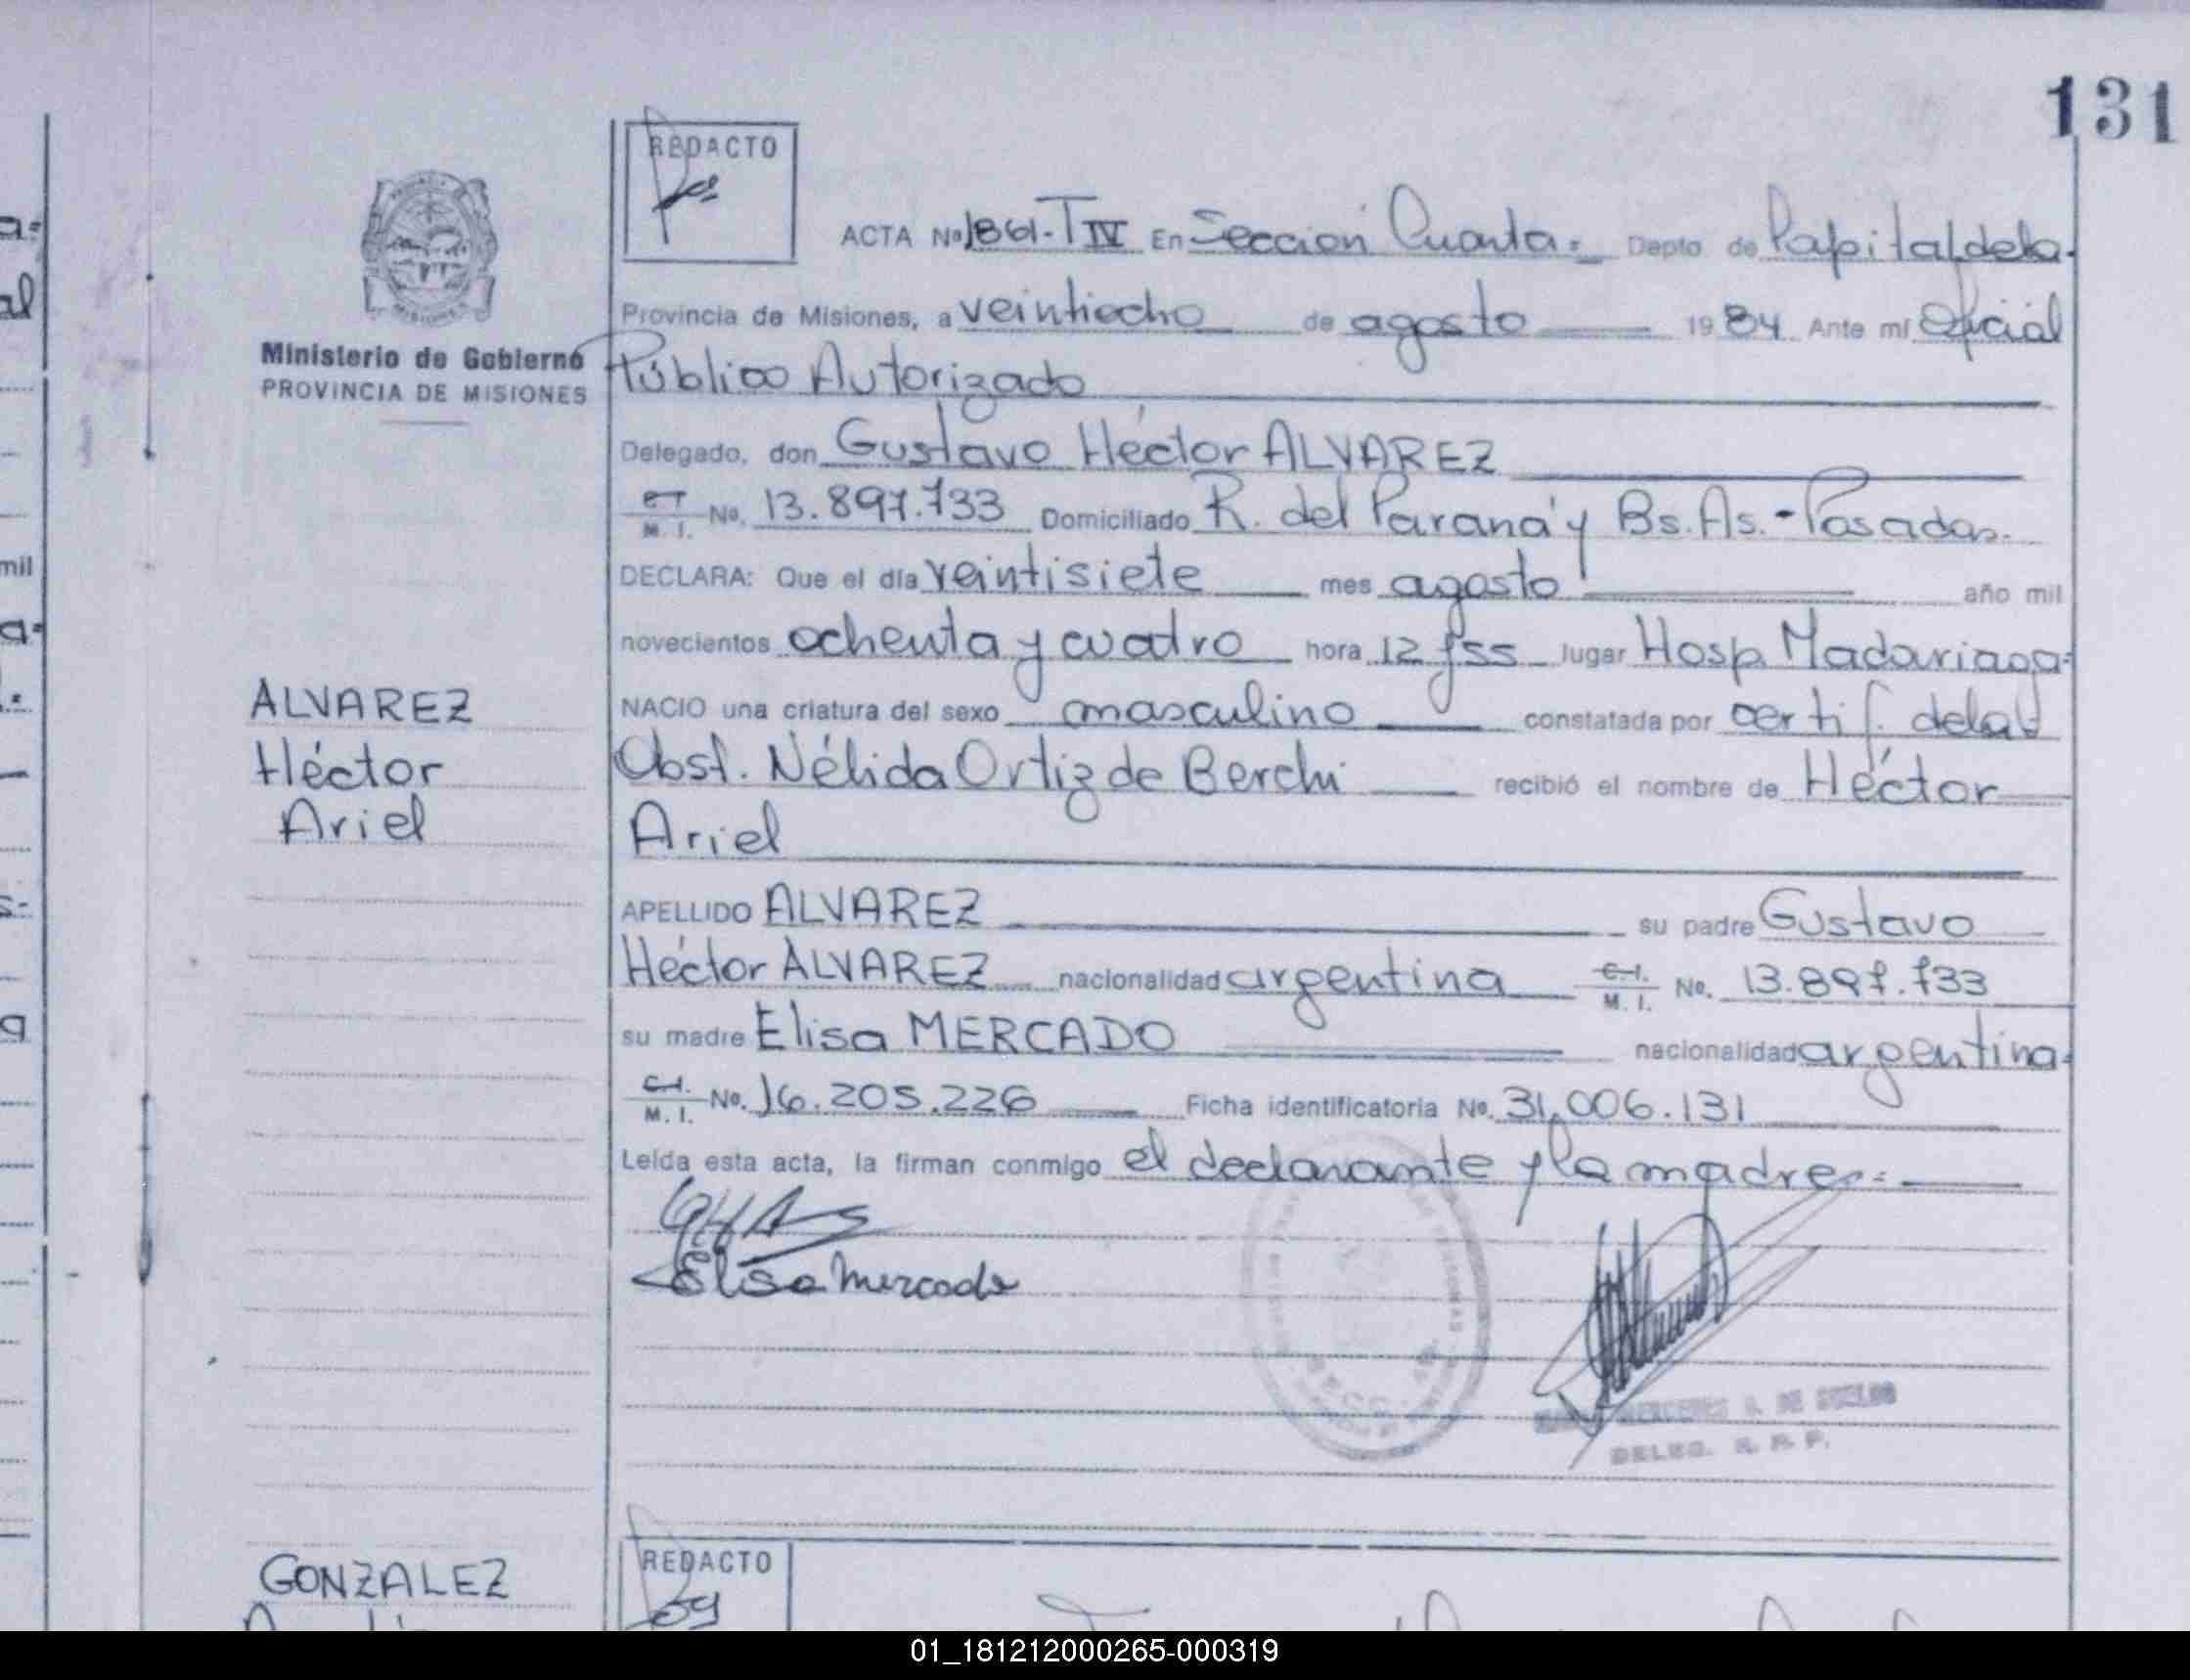 131
REDACTO
ACTA Nº 1861-T IV En Sección Cuarta.= Depto. de Capital de la
Provincia de Misiones, a veintiocho de agosto 1984 Ante mí Oficial
Ministerio de Gobierno
PROVINCIA DE MISIONES
Público Autorizado
Delegado, don Gustavo Héctor ALVAREZ
M. I. Nº. 13.897.733 Domiciliado R. del Paraná y Bs. As.- Posadas.
DECLARA: Que el día veintisiete mes agosto año mil
novecientos ochenta y cuatro hora 12 y 55 lugar Hosp. Madariaga=
NACIO una criatura del sexo masculino constatada por certif. de la
Obst. Nélida Ortiz de Berchi recibió el nombre de Héctor
Ariel
ALVAREZ
Héctor
Ariel
APELLIDO ALVAREZ su padre Gustavo
Héctor ALVAREZ nacionalidad argentina C.I. M. I. Nº. 13.897.733
su madre Elisa MERCADO nacionalidad argentina
C.I. M. I. Nº. 16.205.226 Ficha identificatoria Nº. 31.006.131
Leída esta acta, la firman conmigo el declarante y la madre.=
Elisa Mercado
MERCEDES DE SUELDO
DELEG. R. P.
GONZALEZ
REDACTO
01_181212000265-000319